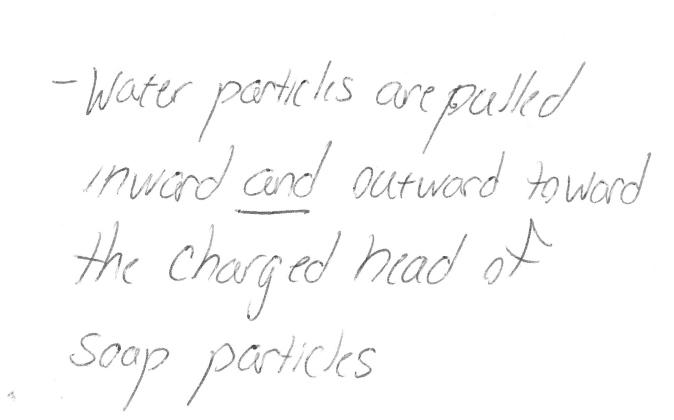 - Water particles are pulled
inward and outward toward
the charged head of
soap particles